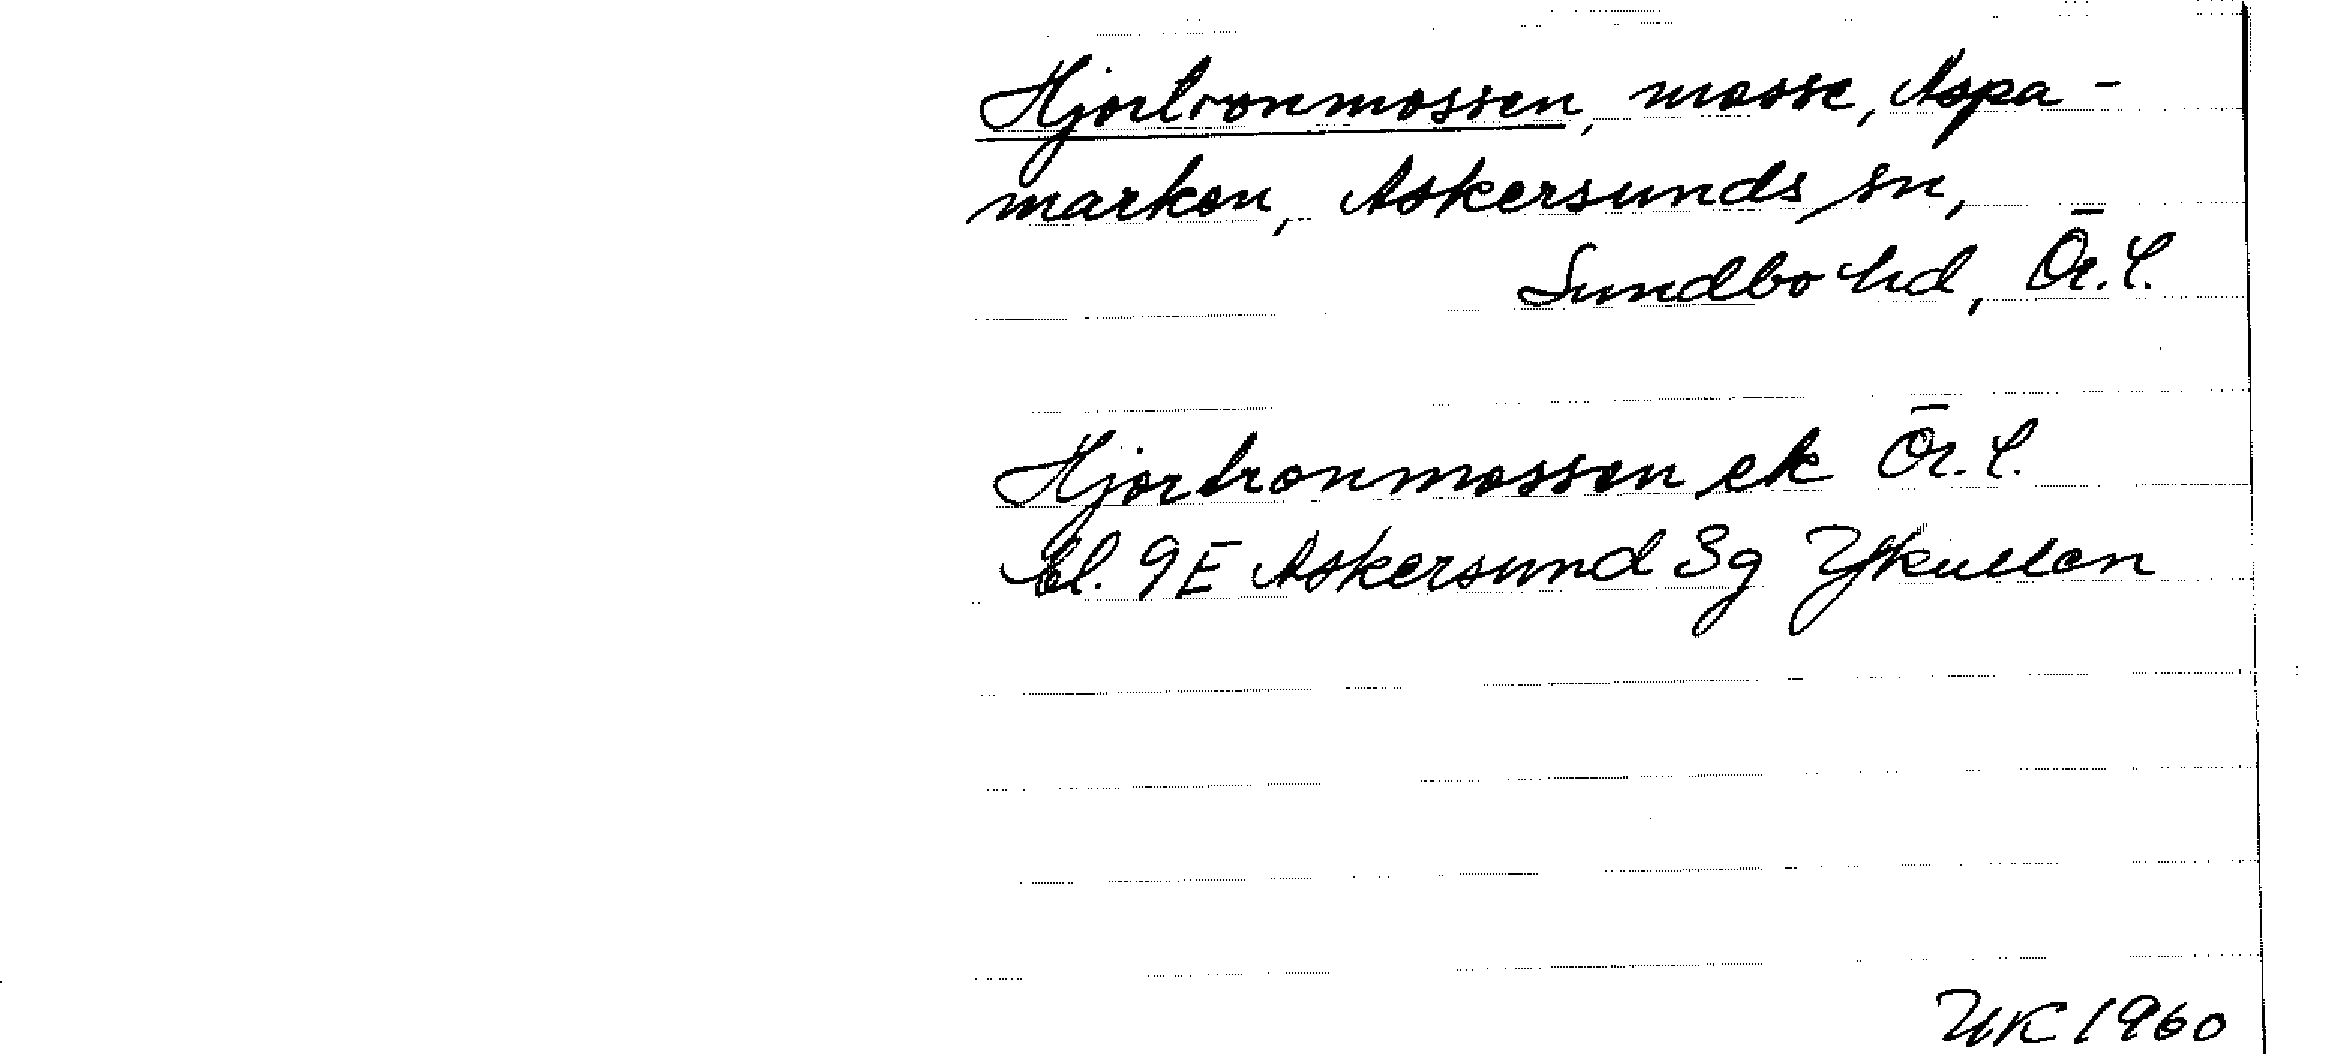 Hjortronmossen, mosse, Aspa-
marken, Askersunds sn,
Sundbo hd, Ör. l.
Hjortronmossen ek Ör. l.
bl. 9E Askersund 3g Ykullen
UK 1960